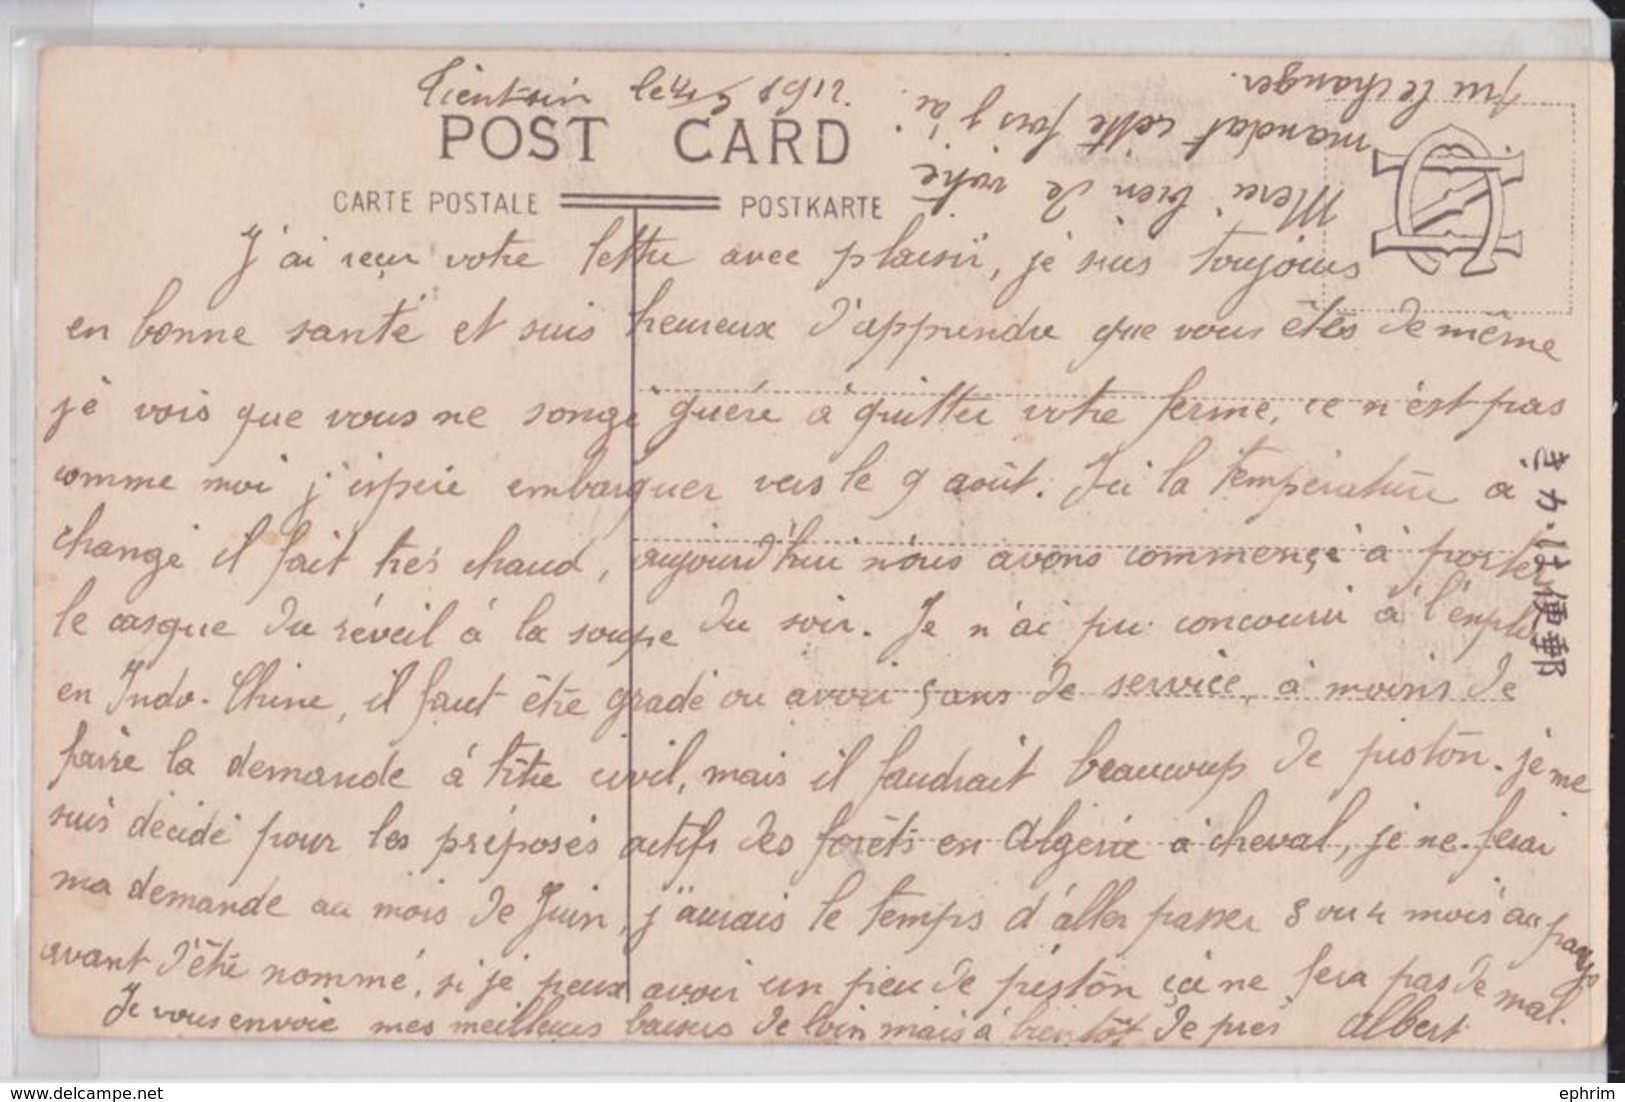 Tientsin le 1912.
POST CARD
CARTE POSTALE POSTKARTE
Merci bien de votre
mandat cette fois j'ai
pu le changer.
J'ai reçu votre lettre avec plaisir, je suis toujours
en bonne santé et suis heureux d'apprendre que vous êtes de même
je vois que vous ne songé guère à quitter votre ferme, ce n'est pas
comme moi j'espère embarquer vers le 9 août. Ici la température à
changé il fait très chaud, aujourd'hui nous avons commençé à porter
le casque du réveil à la soupe du soir. Je n'ai pu concourir à l'emploi
en Indo-Chine, il faut être gradé ou avoir 5 ans de service, à moins de
faire la demande à titre civil, mais il faudrait beaucoup de piston. je me
suis décidé pour les préposés actifs des forêts en Algérie à cheval, je ne ferai
ma demande au mois de Juin, j'aurais le temps d'aller passer 3 ou 4 mois au pays
avant d'être nommé, si je peux avoir un peu de piston çà ne fera pas de mal.
Je vous envoie mes meilleurs baisers de loin mais à bientôt de près Albert
郵便はがき
© www.delcampe.net
ephrim